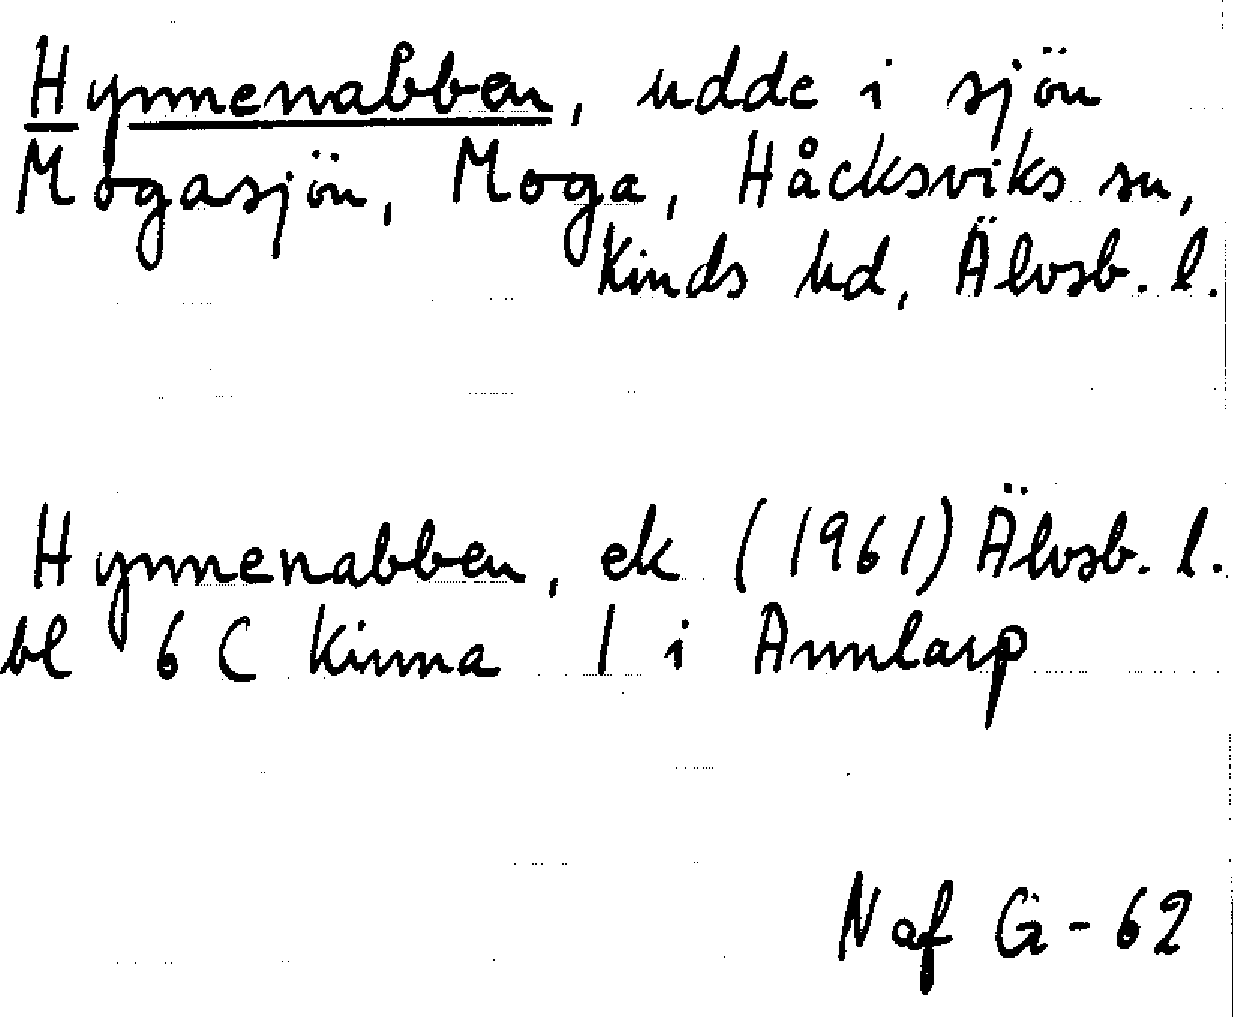 Hynnenabben, udde i sjön
Mogasjön, Moga, Håcksviks sn,
Kinds hd, Älvsb. l.
Hynnenabben, ek (1961) Älvsb. l.
bl 6 C Kinna 1 i Annlarp
N af G-62